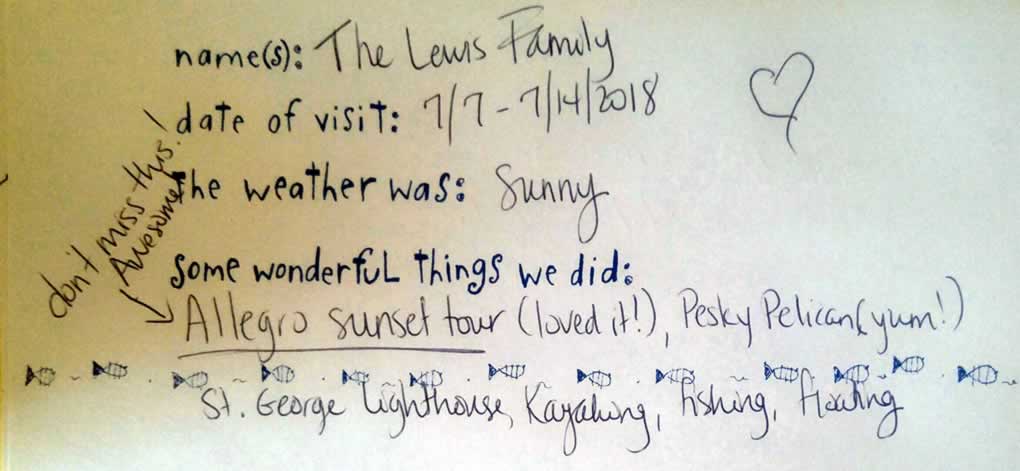 name(s): The Lewis Family
date of visit: 7/7 - 7/14/2018
the weather was: Sunny
don't miss this!
Awesome!
some wonderful things we did:
Allegro sunset tour (loved it!), Pesky Pelican (yum!)
St. George Lighthouse, Kayaking, fishing, floating